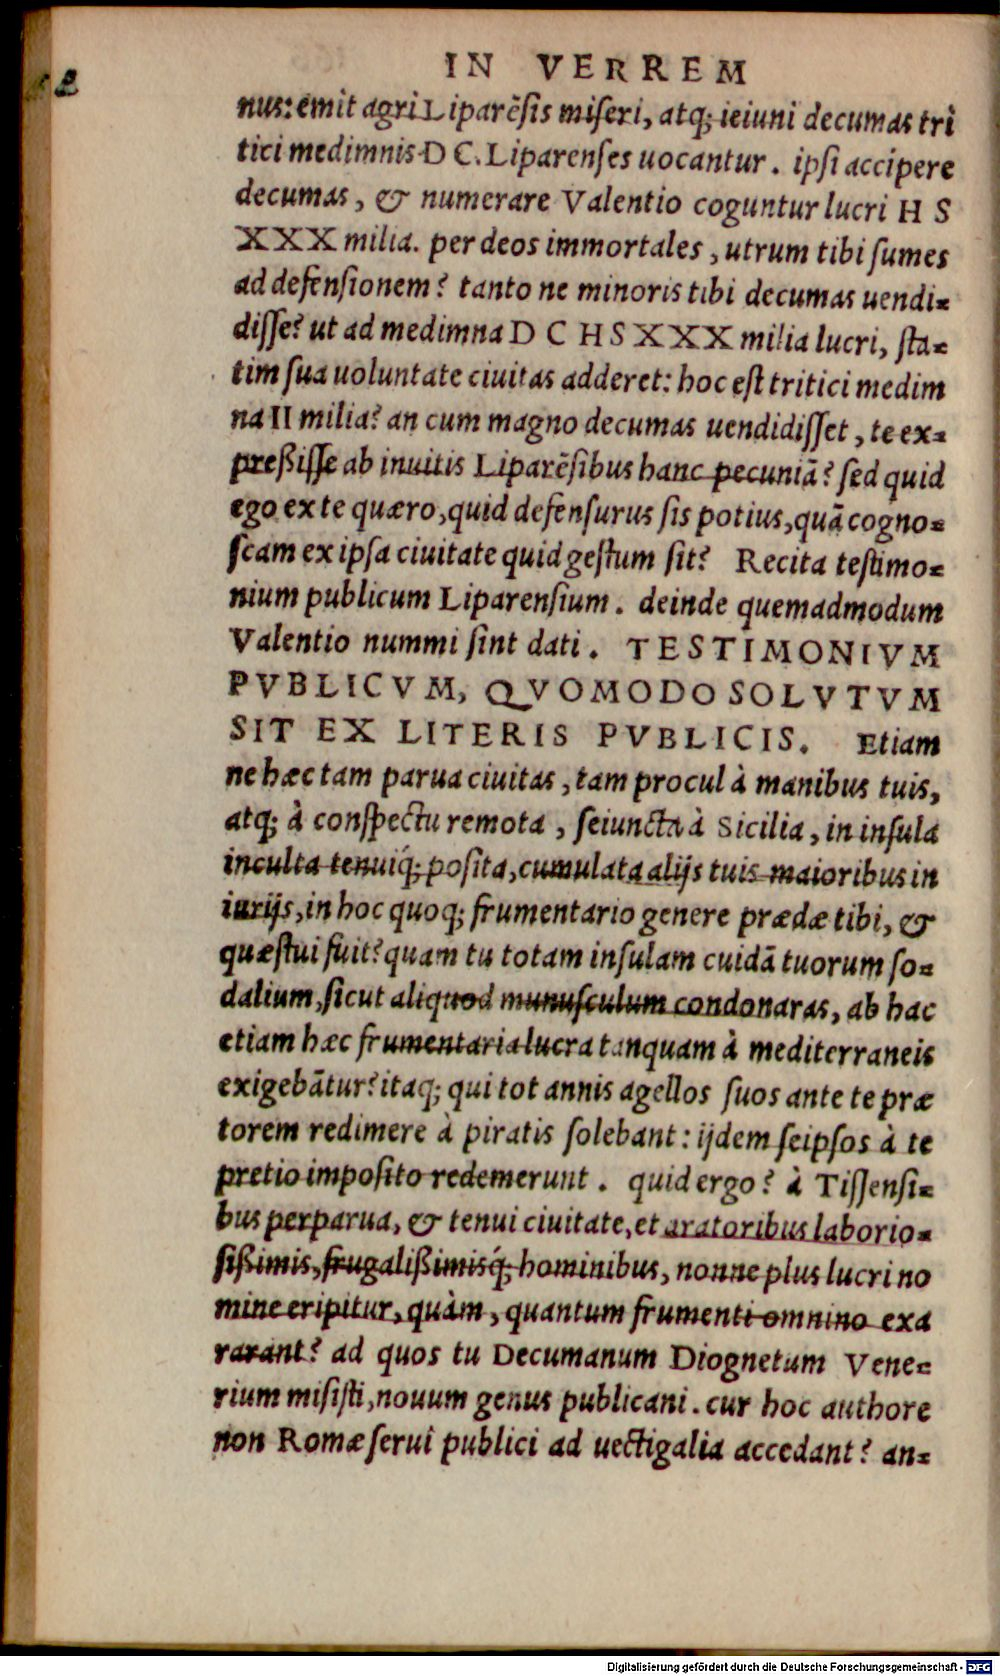 IN VERREM
nus: emit agri Liparẽsis miseri, atq; ieiuni decumas tri
tici medimnis D C. Liparenses uocantur. ipsi accipere
decumas, & numerare Valentio coguntur lucri H S
XXX milia. per deos immortales, utrum tibi sumes
ad defensionem? tanto ne minoris tibi decumas uendi=
disse? ut ad medimna D C H S XXX milia lucri, sta=
tim sua uoluntate ciuitas adderet: hoc est tritici medim
na II milia? an cum magno decumas uendidisset, te ex=
preßisse ab inuitis Liparẽsibus hanc pecuniã? sed quid
ego ex te quæro, quid defensurus sis potius, quã cogno=
scam ex ipsa ciuitate quid gestum sit? Recita testimo=
nium publicum Liparensium. deinde quemadmodum
Valentio nummi sint dati. TESTIMONIVM
PVBLICVM, QVOMODO SOLVTVM
SIT EX LITERIS PVBLICIS. Etiam
ne hæc tam parua ciuitas, tam procul à manibus tuis,
atq; à conspectu remota, seiuncta à Sicilia, in insula
inculta tenuiq́; posita, cumulata alijs tuis maioribus in
iurijs, in hoc quoq; frumentario genere prædæ tibi, &
quæstui fuit? quam tu totam insulam cuidã tuorum so=
dalium, sicut aliquod munusculum condonaras, ab hac
etiam hæc frumentaria lucra tanquam à mediterraneis
exigebãtur? itaq; qui tot annis agellos suos ante te præ
torem redimere à piratis solebant: ijdem seipsos à te
pretio imposito redemerunt. quid ergo? à Tissensi=
bus perparua, & tenui ciuitate, et aratoribus laborio=
sißimis, frugalißimisq́; hominibus, nonne plus lucri no
mine eripitur, quàm, quantum frumenti omnino exa
rarant? ad quos tu Decumanum Diognetum Vene=
rium misisti, nouum genus publicani. cur hoc authore
non Romæ serui publici ad uectigalia accedant? an=
Digitalisierung gefördert durch die Deutsche Forschungsgemeinschaft - DFG